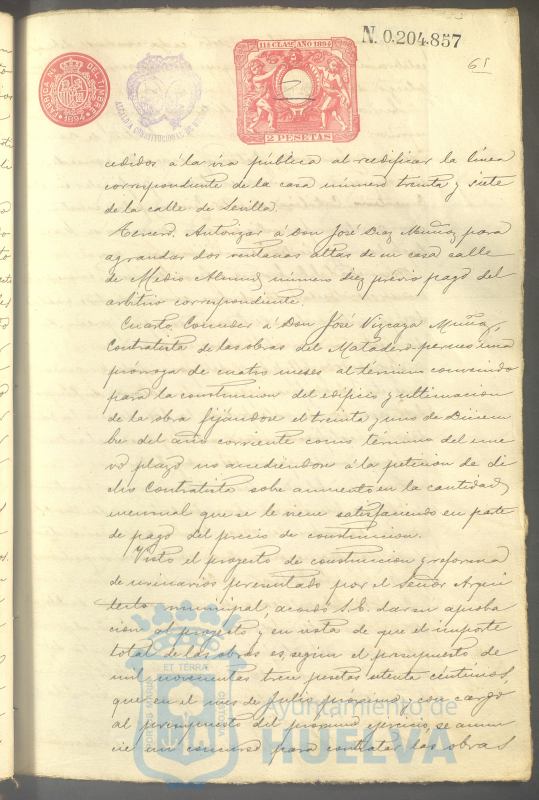 N. 0.204.857
65
FABRICA NAL DEL TIMBRE
1894
ALCALDIA CONSTITUCIONAL DE HUELVA
11ª CLASE AÑO 1894
2 PESETAS
cedidos á la via pública al reedificar la línea
correspondiente de la casa número treinta y siete
de la calle de Sevilla.
Tercero. Autorizar á Don José Diaz Muñoz para
agrandar dos ventanas altas de su casa calle
de Medio Almud número diez previo pago del
arbitrio correspondiente.
Cuarto. Conceder á Don José Vizcaya Muñoz,
Contratista de las obras del Matadero publico una
prórroga de cuatro meses al término convenido
para la construccion del edificio y ultimacion
de la obra fijándose el treinta y uno de Diciem
bre del año corriente como término del nue
vo plazo no accediendose á la peticion de di
cho Contratista sobre aumento en la cantidad
mensual que se le viene satisfaciendo en parte
de pago del precio de construccion.
Visto el proyecto de construccion y reforma
de urinarios presentado por el Señor Arqui
tecto municipal acordó S.E. dar su aproba
cion al proyecto y en vista de que el importe
total de las obras es, segun el presupuesto de
mil novecientas trece pesetas setenta céntimos,
que en el mes de Julio próximo y con cargo
al presupuesto del proximo ejercicio, se anun
cie un concurso para contratar las obras
ET TERRÆ
Ayuntamiento de
HUELVA